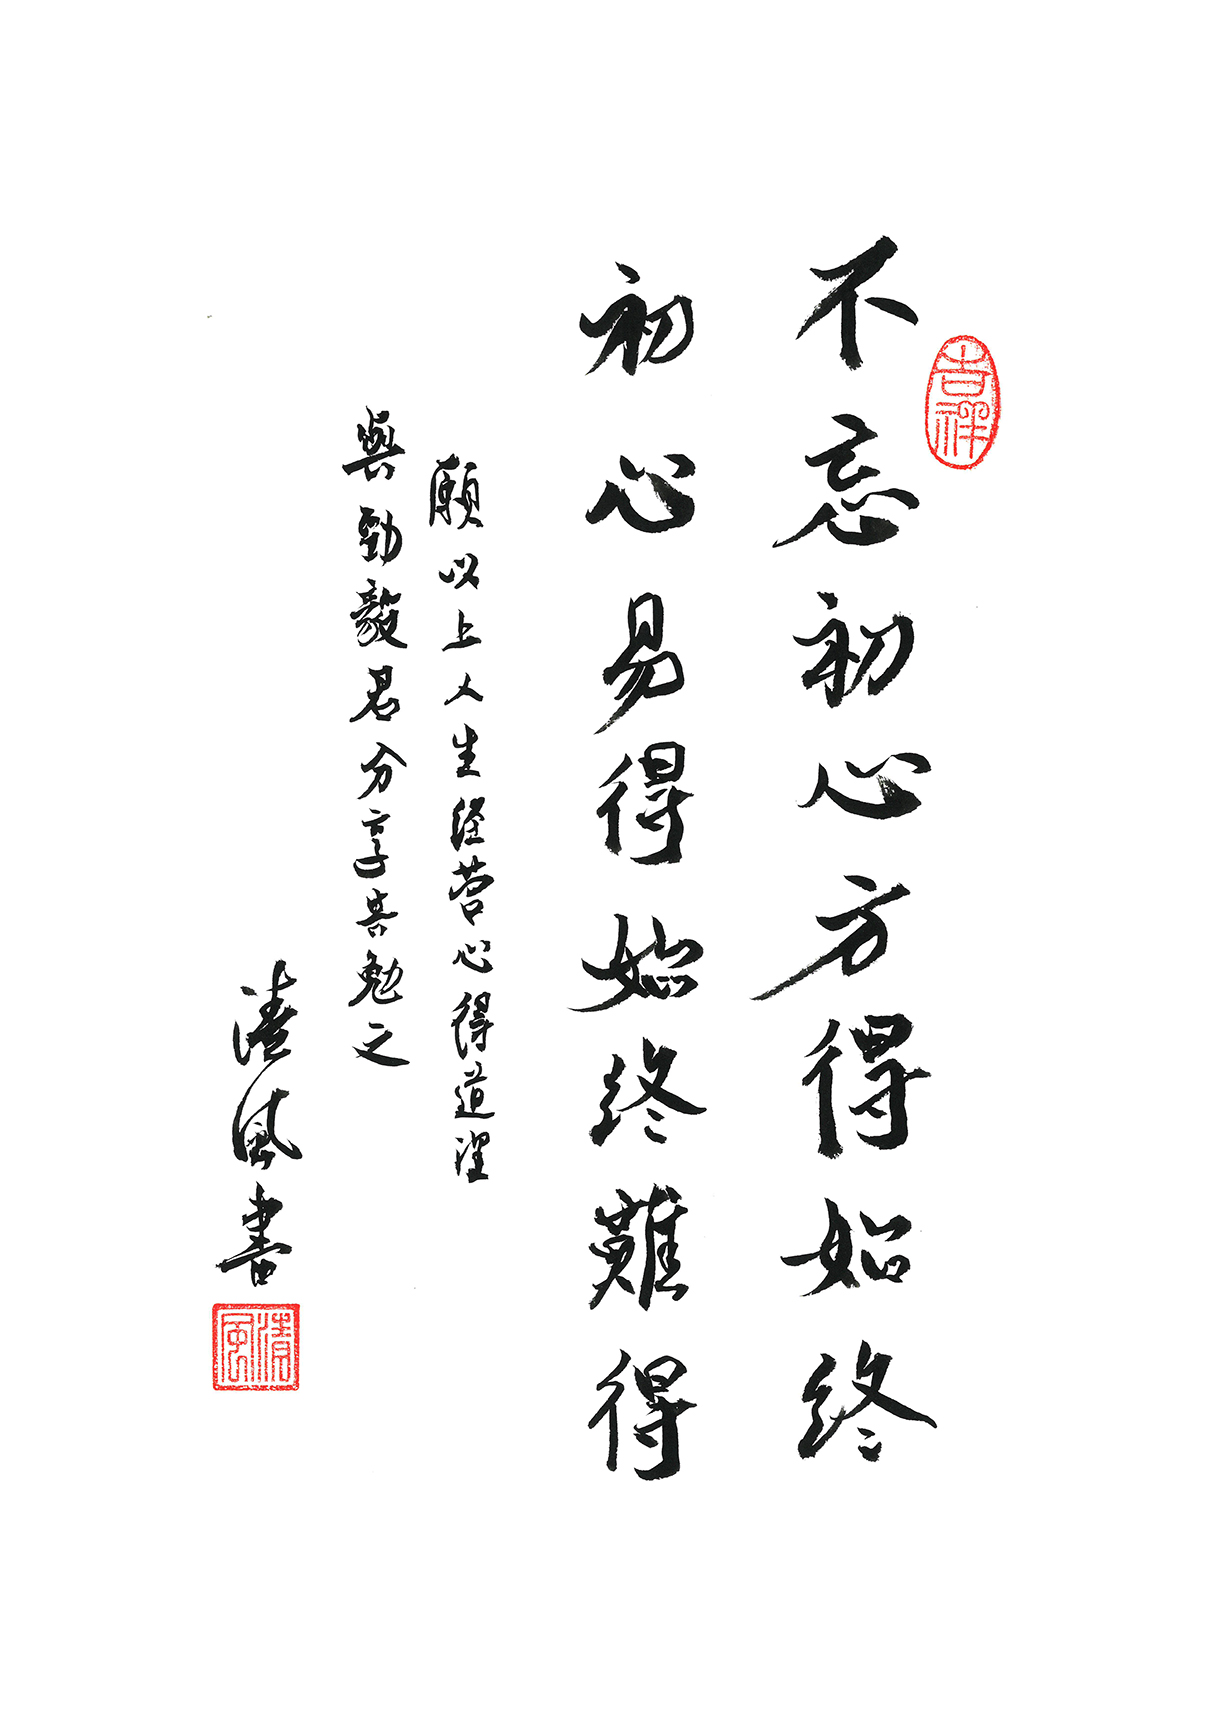 吉祥
不忘初心方得始终
初心易得始终難得
願以上人生经营心得道理
與勁毅君分享共勉之
清風書
清風